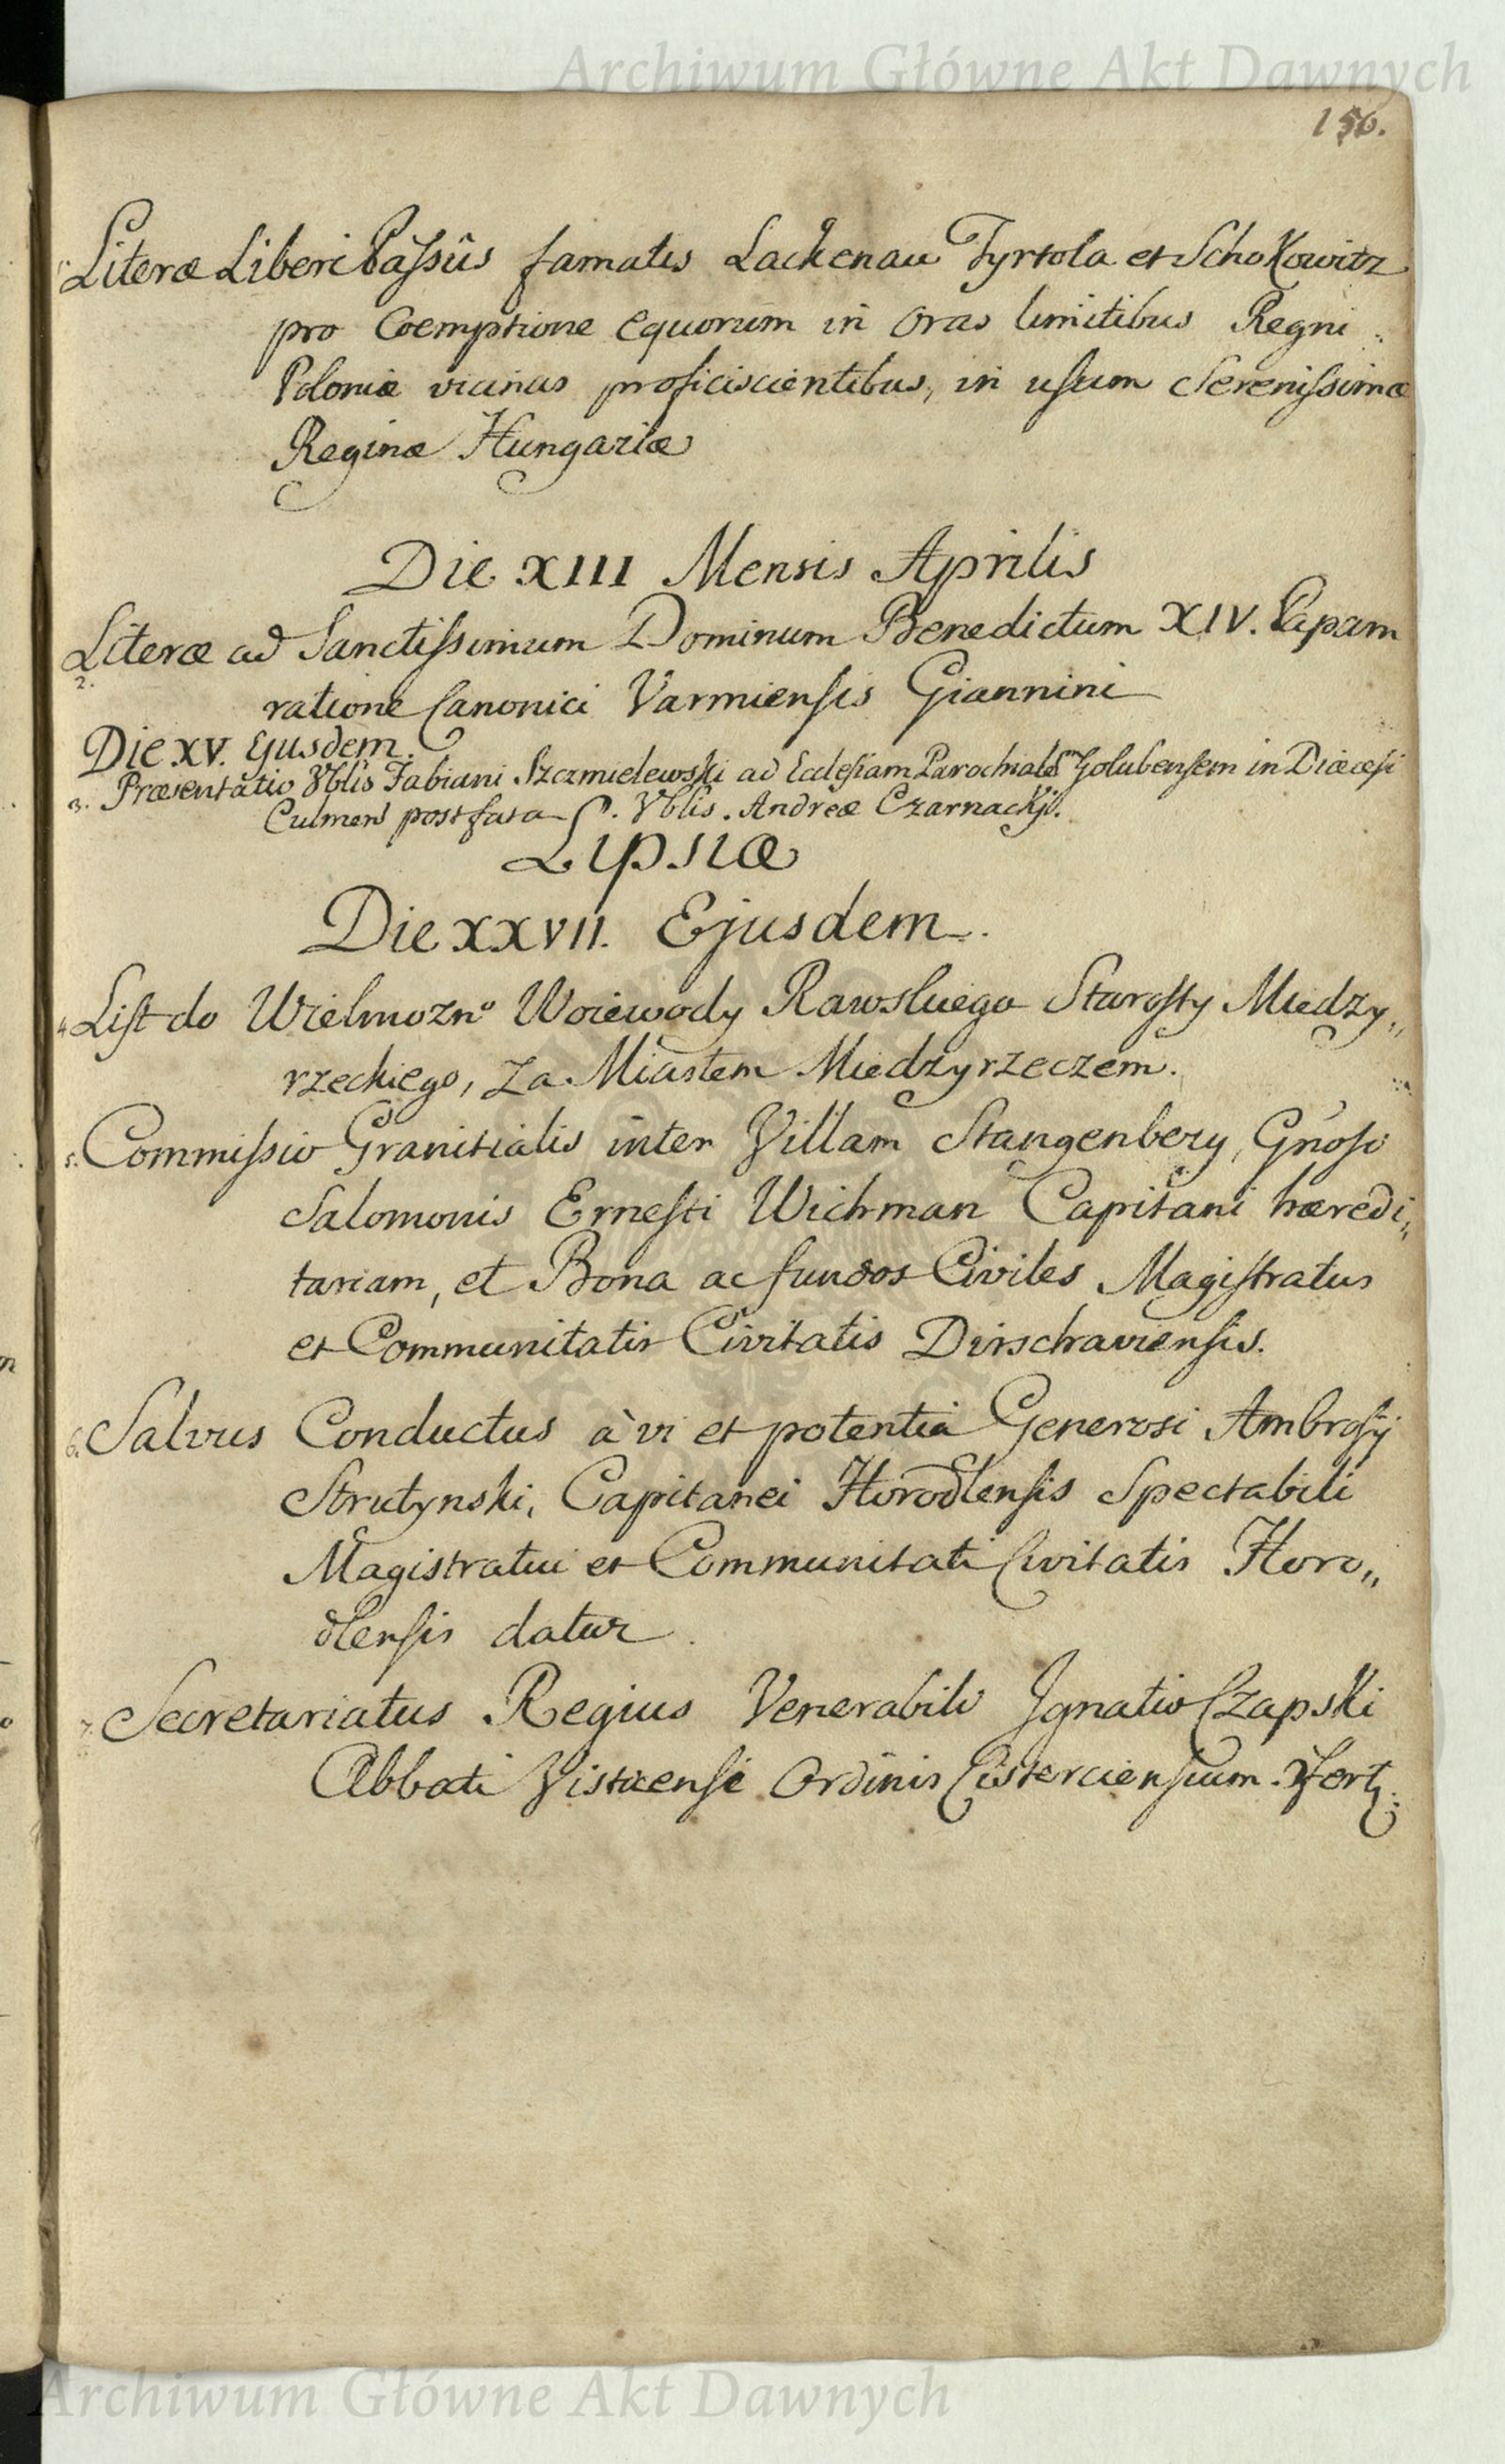 Archiwum Główne Akt Dawnych
156.
1. Literæ Liberi Passûs famatis Lackenau Tyrtola et Schokowitz
pro Coemptione equorum in oras limitibus Regni
Poloniæ vicinas proficiscientibus, in usum Serenissimæ
Reginæ Hungariæ
Die XIII Mensis Aprilis
Literæ ad Sanctissimum Dominum Benedictum XIV. Papam
2.
ratione Canonici Varmiensis Giannini
Die XV. Ejusdem.
3. Præsentatio Vblis Fabiani Szczmielewski ad Ecclesiam Parochialem Golubensem in Diœcesi
Culmens post fata S. Vblis. Andreæ Czarnackji.
Lipsiæ
Die XXVII. Ejusdem.
4. List do Wielmozno Woiewody Rawskiego Starosty Miedzy„
rzeckiego, za Miastem Miedzyrzeczem.
5. Commissio Granitialis inter Villam Stangenberg, Gnosi
Salomonis Ernesti Wichman Capitani hæredi„
tariam, et Bona ac fundos Civiles Magistratus
et Communitatis Civitatis Dirschaviensis.
6. Salvus Conductus à vi et potentia Generosi Ambrosij
Strutynski, Capitanei Horodlensis Spectabili
Magistratui et Communitati Civitatis Horo„
dlensis datur
7. Secretariatus Regius Venerabili Ignatio Czapski
Abbati Visticensi Ordinis Cisterciensium.
Archiwum Główne Akt Dawnych